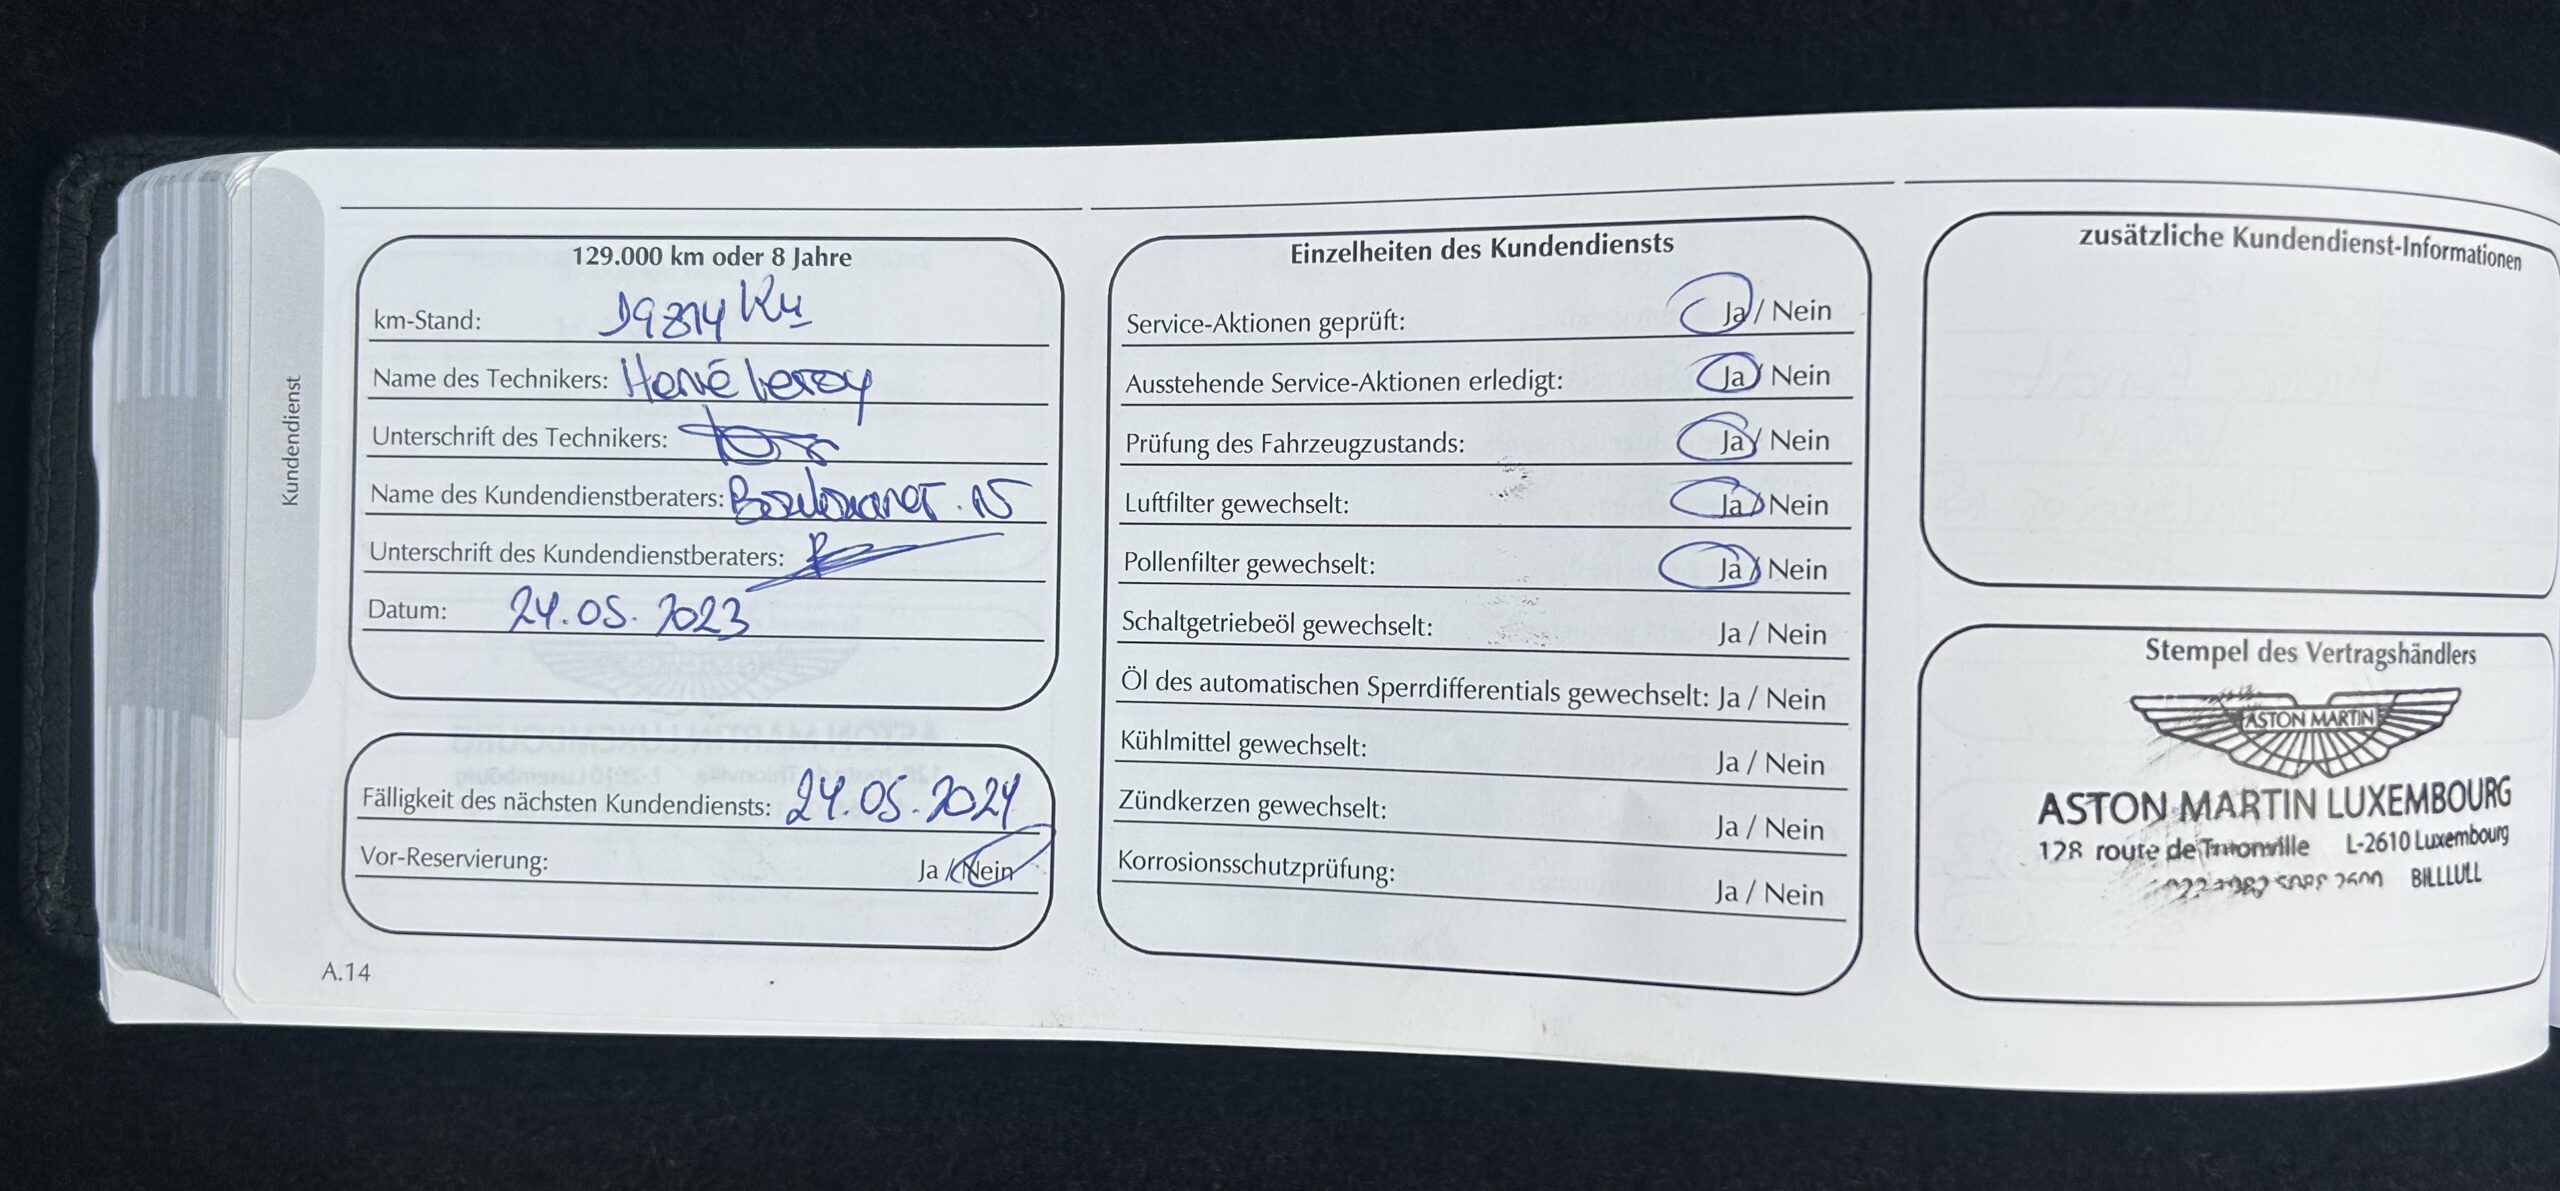 Kundendienst
129.000 km oder 8 Jahre
km-Stand:
Name des Technikers: Hervé Leroy
Unterschrift des Technikers:
Name des Kundendienstberaters:
Unterschrift des Kundendienstberaters:
Datum: 24.05.2023
Fälligkeit des nächsten Kundendiensts: 24.05.2024
Vor-Reservierung: Ja / Nein
A.14
Einzelheiten des Kundendiensts
Service-Aktionen geprüft: Ja / Nein
Ausstehende Service-Aktionen erledigt: Ja / Nein
Prüfung des Fahrzeugzustands: Ja / Nein
Luftfilter gewechselt: Ja / Nein
Pollenfilter gewechselt: Ja / Nein
Schaltgetriebeöl gewechselt: Ja / Nein
Öl des automatischen Sperrdifferentials gewechselt: Ja / Nein
Kühlmittel gewechselt: Ja / Nein
Zündkerzen gewechselt: Ja / Nein
Korrosionsschutzprüfung: Ja / Nein
zusätzliche Kundendienst-Informationen
Stempel des Vertragshändlers
ASTON MARTIN
ASTON MARTIN LUXEMBOURG
128 route de Thionville L-2610 Luxembourg
BILLLULL